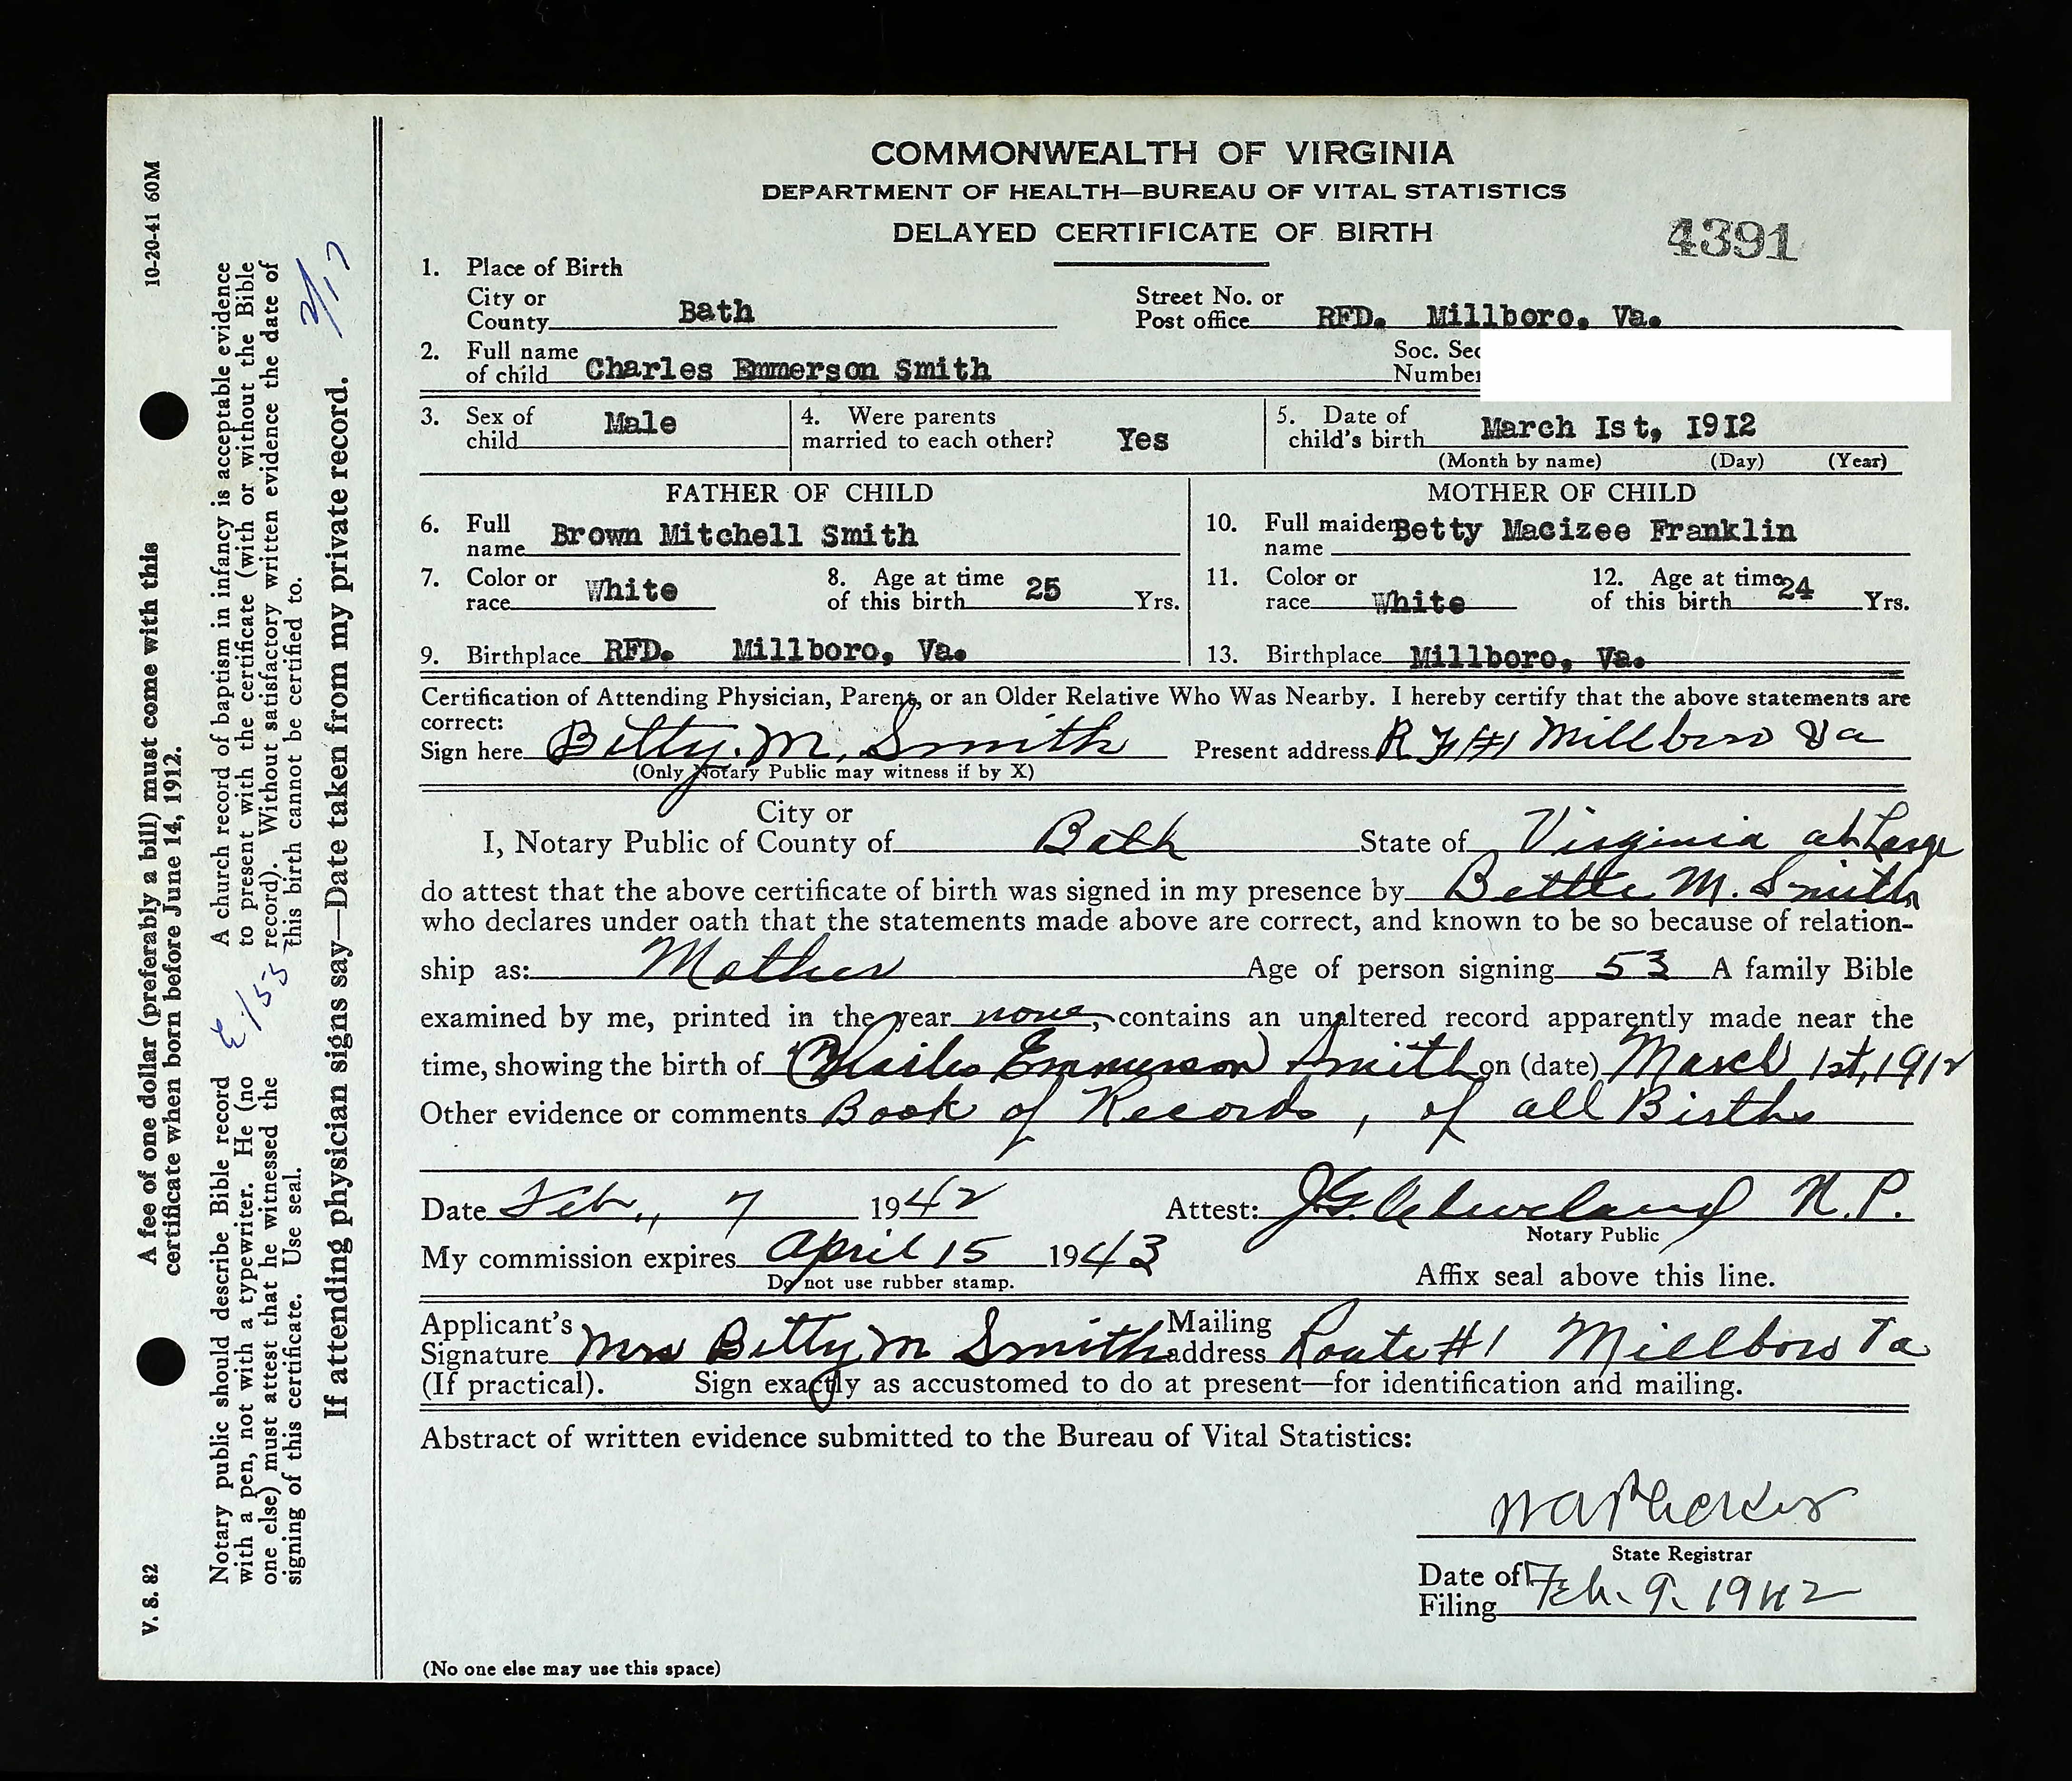 COMMONWEALTH OF VIRGINIA
DEPARTMENT OF HEALTH—BUREAU OF VITAL STATISTICS
DELAYED CERTIFICATE OF BIRTH
4391
1. Place of Birth
City or County Bath Street No. or Post office RFD. Millboro, Va.
2. Full name of child Charles Emmerson Smith Soc. Sec Number
3. Sex of child Male 4. Were parents married to each other? Yes 5. Date of child's birth March Ist, I9I2
(Month by name) (Day) (Year)
FATHER OF CHILD MOTHER OF CHILD
6. Full name Brown Mitchell Smith 10. Full maiden name Betty Macizee Franklin
7. Color or race White 8. Age at time of this birth 25 Yrs. 11. Color or race White 12. Age at time of this birth 24 Yrs.
9. Birthplace RFD. Millboro, Va. 13. Birthplace Millboro, Va.
Certification of Attending Physician, Parent, or an Older Relative Who Was Nearby. I hereby certify that the above statements are
correct:
Sign here Betty. M. Smith Present address R F #1 Millboro Va
(Only Notary Public may witness if by X)
City or
I, Notary Public of County of Bath State of Virginia at Large
do attest that the above certificate of birth was signed in my presence by Bettie M. Smith
who declares under oath that the statements made above are correct, and known to be so because of relation-
ship as: Mother Age of person signing 53 A family Bible
examined by me, printed in the year none, contains an unaltered record apparently made near the
time, showing the birth of Charles Emmerson Smith on (date) March 1st, 1912
Other evidence or comments Book of Records, of all Births
Date Feb., 7 1942 Attest: J.G. Cleveland N.P.
Notary Public
My commission expires April 15 1943
Do not use rubber stamp. Affix seal above this line.
Applicant's Signature Mrs Betty M Smith Mailing address Route #1 Millboro Va
(If practical). Sign exactly as accustomed to do at present—for identification and mailing.
Abstract of written evidence submitted to the Bureau of Vital Statistics:
State Registrar
Date of Filing Feb. 9. 1942
(No one else may use this space)
V. S. 82
10-20-41 60M
A fee of one dollar (preferably a bill) must come with this
certificate when born before June 14, 1912.
Notary public should describe Bible record
with a pen, not with a typewriter. He (no
one else) must attest that he witnessed the
signing of this certificate. Use seal.
E/55
A church record of baptism in infancy is acceptable evidence
to present with the certificate (with or without the Bible
record). Without satisfactory written evidence the date of
this birth cannot be certified to.
2/17
If attending physician signs say—Date taken from my private record.